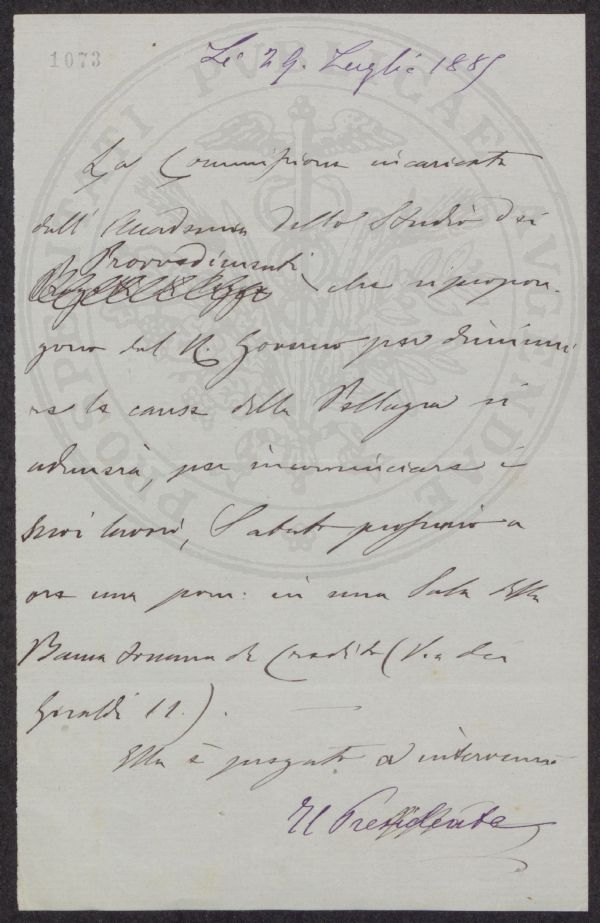 1073
Li 29. Luglio 1885
La Commissione incaricata
dall' Accademia dello Studio dei
Provvedimenti
che si propon-
gono dal R. Governo per diminui
re le cause della Pellagra si
adunerà, per incominciare i
suoi lavori, Sabato prossimo a
ore una pom: in una Sala della
Banca Toscana di Credito (Via dei
Giraldi 11.).
Ella è pregato a intervenire
Il Presidente
PROSPERITATI PUBLICAE AUGENDAE